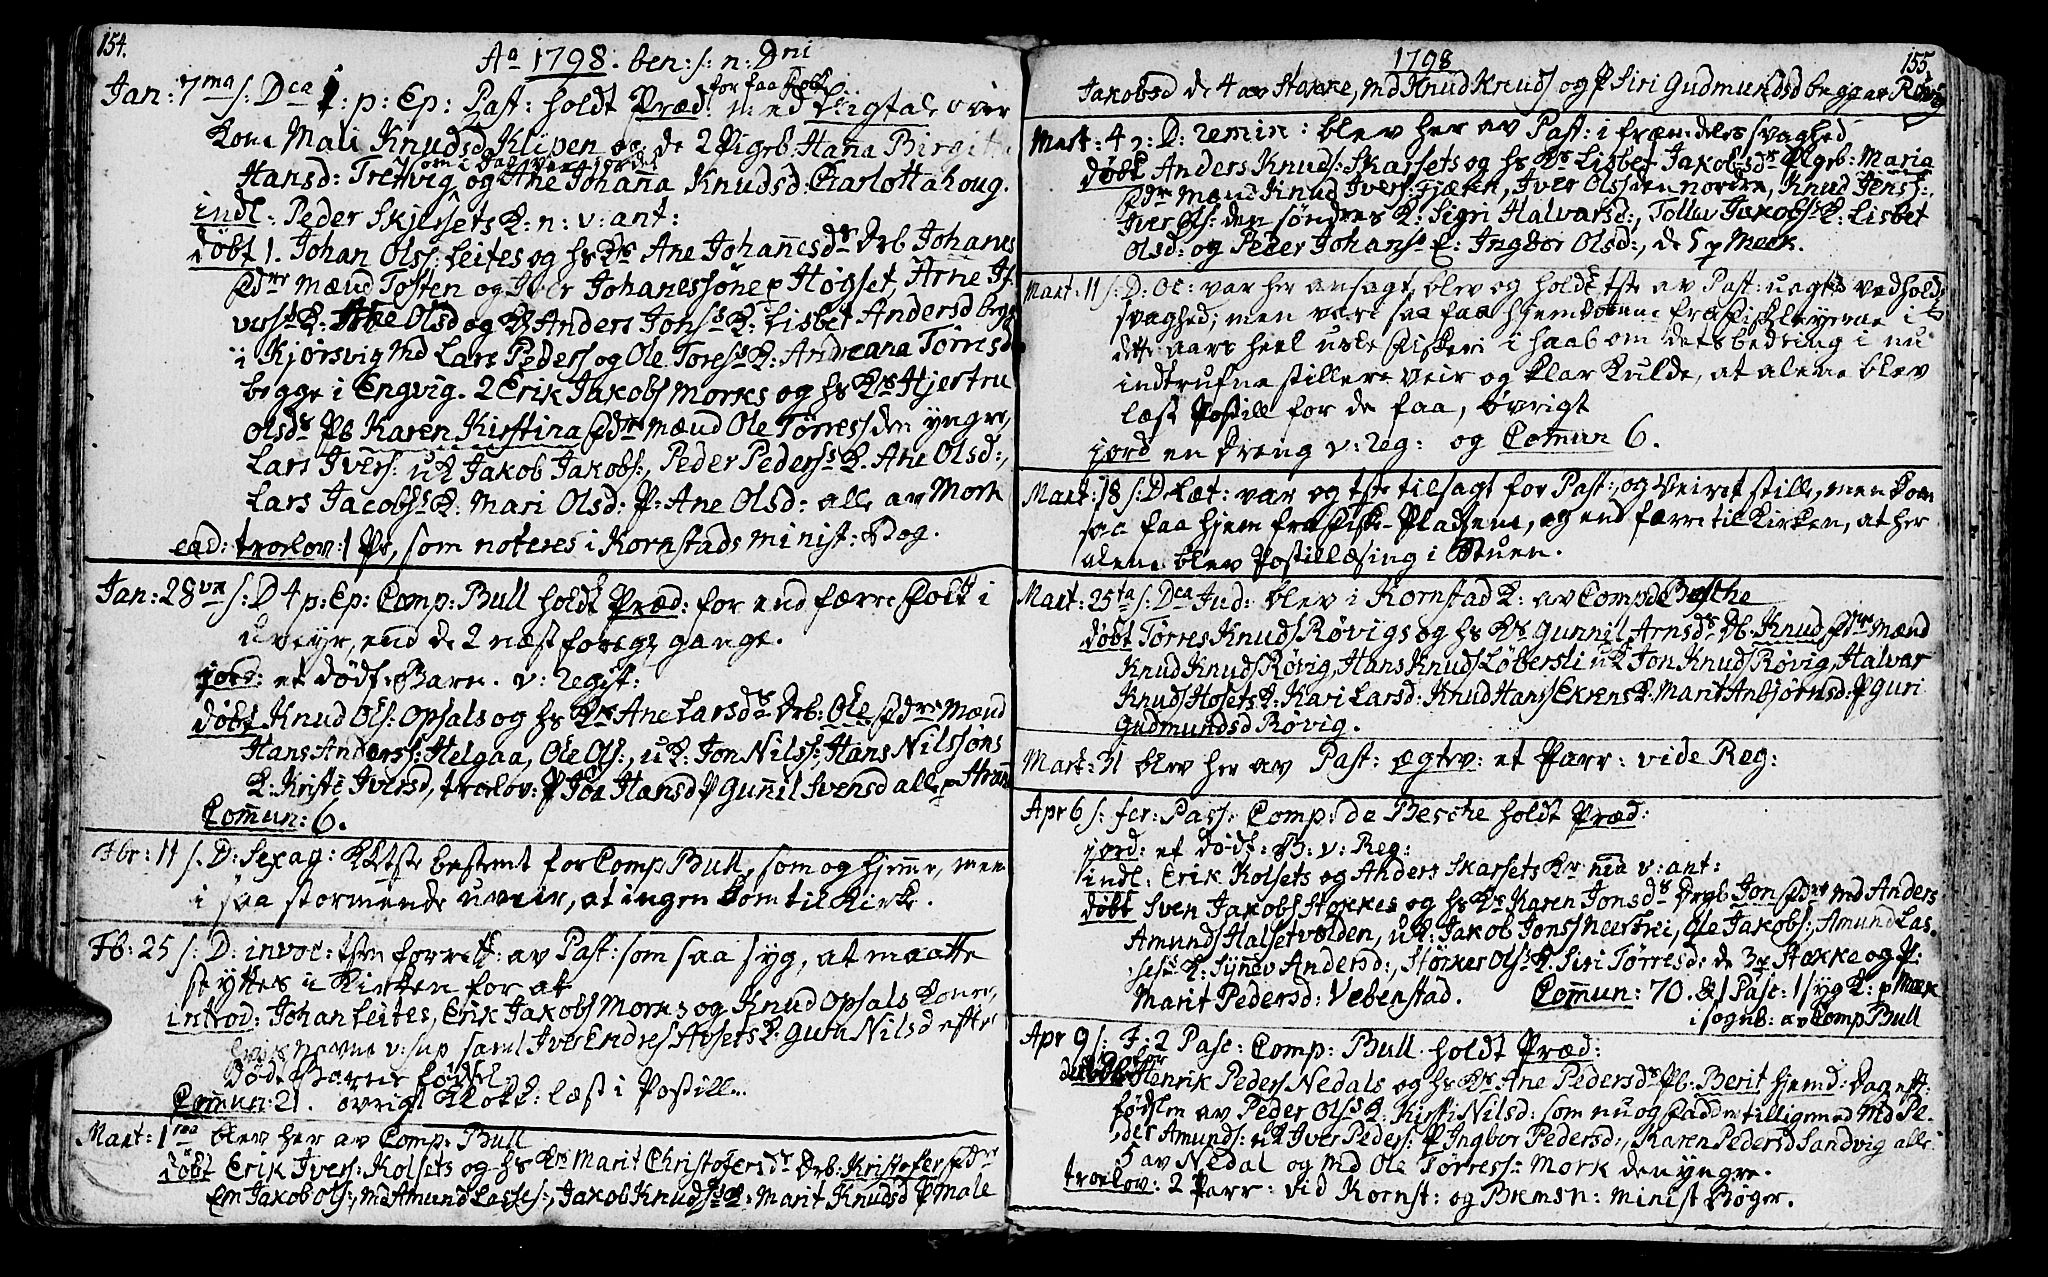 154.
Ao 1798. ben: s: n: Dni
Jan: 7ma s: Dca 1: p: Ep: Past: holdt Præd: for faa Folk med Ligtale over
Kone Mali Knudsd Klipen og de 2 Pigeb: Hana Birgitte
Hansd: Trettvig, som i Dag var jordet og Ane Johana Knudsd: Charlottahoug.
indl: Peder Skjelsets K: n: v: ant:
døbt 1. Johan Ols: Leites og hs Ks Ane Johanesds Drb Johanes
Fdre Mænd Tosten og Iver Johanessøne p Høgset, Arne I-
vers: K: Ane Olsd og K Anders Jonss K: Lisbet Andersd begge
i Kjørsvig Md Lars Peders og Ole Toress K: Andreana Torresd
begge i Engvig. 2 Erik Jakobs Morks og hs Ks Hjertru
Olsds Pb Karen Kirstina Fdre Mænd Ole Tørress den yngre,
Lars Ivers: uK Jakob Jakobs:, Peder Pederss K. Ane Olsd:,
Lars Jacobss K. Mari Olsd: P: Ane Olsd: alle av Mork
ead: trolov: 1 Pr, som noteres i Kornstads Minist: Bog.
Jan: 28va s: D 4 p: Ep: Comp: Bull holdt Præd: for end færre Folk i
uveyr, end de 2 næst foreg: gange.
jord: et dødf: Barn. v: Regist:
døbt Knud Ols: Opsals og hs Ks Ane Larsds Drb: Ole Fdre Mænd
Hans Anderss: Helgaa, Ole Ols:, uK: Jon Nilss: Hans Nilssøns
K: Kirsti Iversd, trolov: P Joa Hansd P Gunil Svensd alle p
Comun: 6.
Fbr: 11 s: D: Sexag: Ktste bestemt for Comp Bull, som og hjeme, men
i saa stormende uveir, at ingen kom til Kirke.
Fb: 25 s: D: invoc: tsten forrett: av Past: som saa syg, at maatte
støttes i Kirken for at
introd: Johan Leites, Erik Jakobs Morks og Knud Opsals Koner,
v: sup saml Iver Endres Hosets K: Guru Nilsd efter
dødt Barns fødsel.
Comun: 21. øvrigt Klok: læst i Postill.
Mart: 1ma blev her av Comp: Bull
døbt Erik Ivers: Kolsets og hs Ks Marit Christofersds Drb: Kristofer Fdre
Em Jakob Ols:, Md Amund Lasses:, Jakob Knudss K: Marit Knudsd P Male
1798
155
Jakobsd de 4 av Stokke, Md Knud Knuds og P Siri Gudmundsd begge av Røvig
Mart: 4 s: D: remin: blev her av Past: i fremdeles svaghed
døbt Anders Knuds: Skarsets og hs Ks Lisbet Jakobsds Pigeb: Maria
Fdre Mænd Knud Ivers: Gjøken, Iver Olss den nordre, Knud Jenss:,
Iver Ols: den søndres K: Sigri Halvarsd:, Tollev Jakobss K: Lisbet
Olsd: og Peder Johanss E: Ingbor Olsd:, de 5 p Meek.
Mart: 11 s: D: Oc: var her ansagt, blev og holdt tste av Past: uagtet vedhold
svaghed; men vare saa faa hjemkomne fra Fiskleyerne i
dette aars heel usle Fiskeri i haab om dets bedring i nu
indtrufne stillere Veir og klar Kulde, at alene blev
læst Postill for de faa, øvrigt
jord en dreng v: reg: og Comun 6.
Mart: 18 s: D: Læt: var og tste tilsagt for Past:, og Veiret stille, men kom
saa faa hjem fra Fiske-Pladsene, og end færre til Kirken, at her
alene blev Postillæsing i Stuen.
Mart: 25ta s: Dca Jud: blev i Kornstad K: av Comp de Besche
døbt Tørres Knuds Røvigs og hs Ks Gunnil Arnsds Db. Knud Fdre Mænd
Knud Knuds Røvig, Hans Knuds Løbersli uK Jon Knuds Røvig, Halvar
Knuds Hosets K: Kari Larsd: Knud Hanss Ekrens K: Marit Anbjørnsd: P Guri
Gudmundsd Røvig.
Mart: 31 blev her av Past: ægtev: et Parr: vide Reg:
Apr 6 s: fer: Pass: Comp: de Besche holdt Præd:
jord: et dødf: B: v: Reg:
indl: Erik Kolsets og Anders Skarsets Kr nia v: ant:
døbt Sven Jakobs Stokkes og hs Ks Karen Jonsds Drgb Jon Fdre Md Anders
Amunds Halsetvolden, uK: Jakob Jonss Neustrei, Ole Jakobs:, Amund Las-
ses: K: Synev Andersd:, Størker Olss K. Siri Tørresd: de 3 p Stokke og P:
Marit Pedersd: Vebenstad. Comun: 70. & 1 Pasc: 1 syg K: p Meek
i sogneb: av Comp Bull
Apr 9 s: F: 2 Pasc: Comp: Bull holdt Præd:
Henrik Peders Nedals og hs Ks Ane Pedersds Pb: Berit hjemd: Dag eft:
fødslen av Peder Olss K: Kirsti Nilsd: som nu og Fadde tilligemed Md Pe-
der Amunds: uK Iver Peders: P Ingbor Pedersd:, Karen Pedersd Sandvig alle
5 av Nedal og Md Ole Tørress: Mork den yngre.
trolov: 2 Parr: vid Kornst: og Bremsn: Minist Bøger.